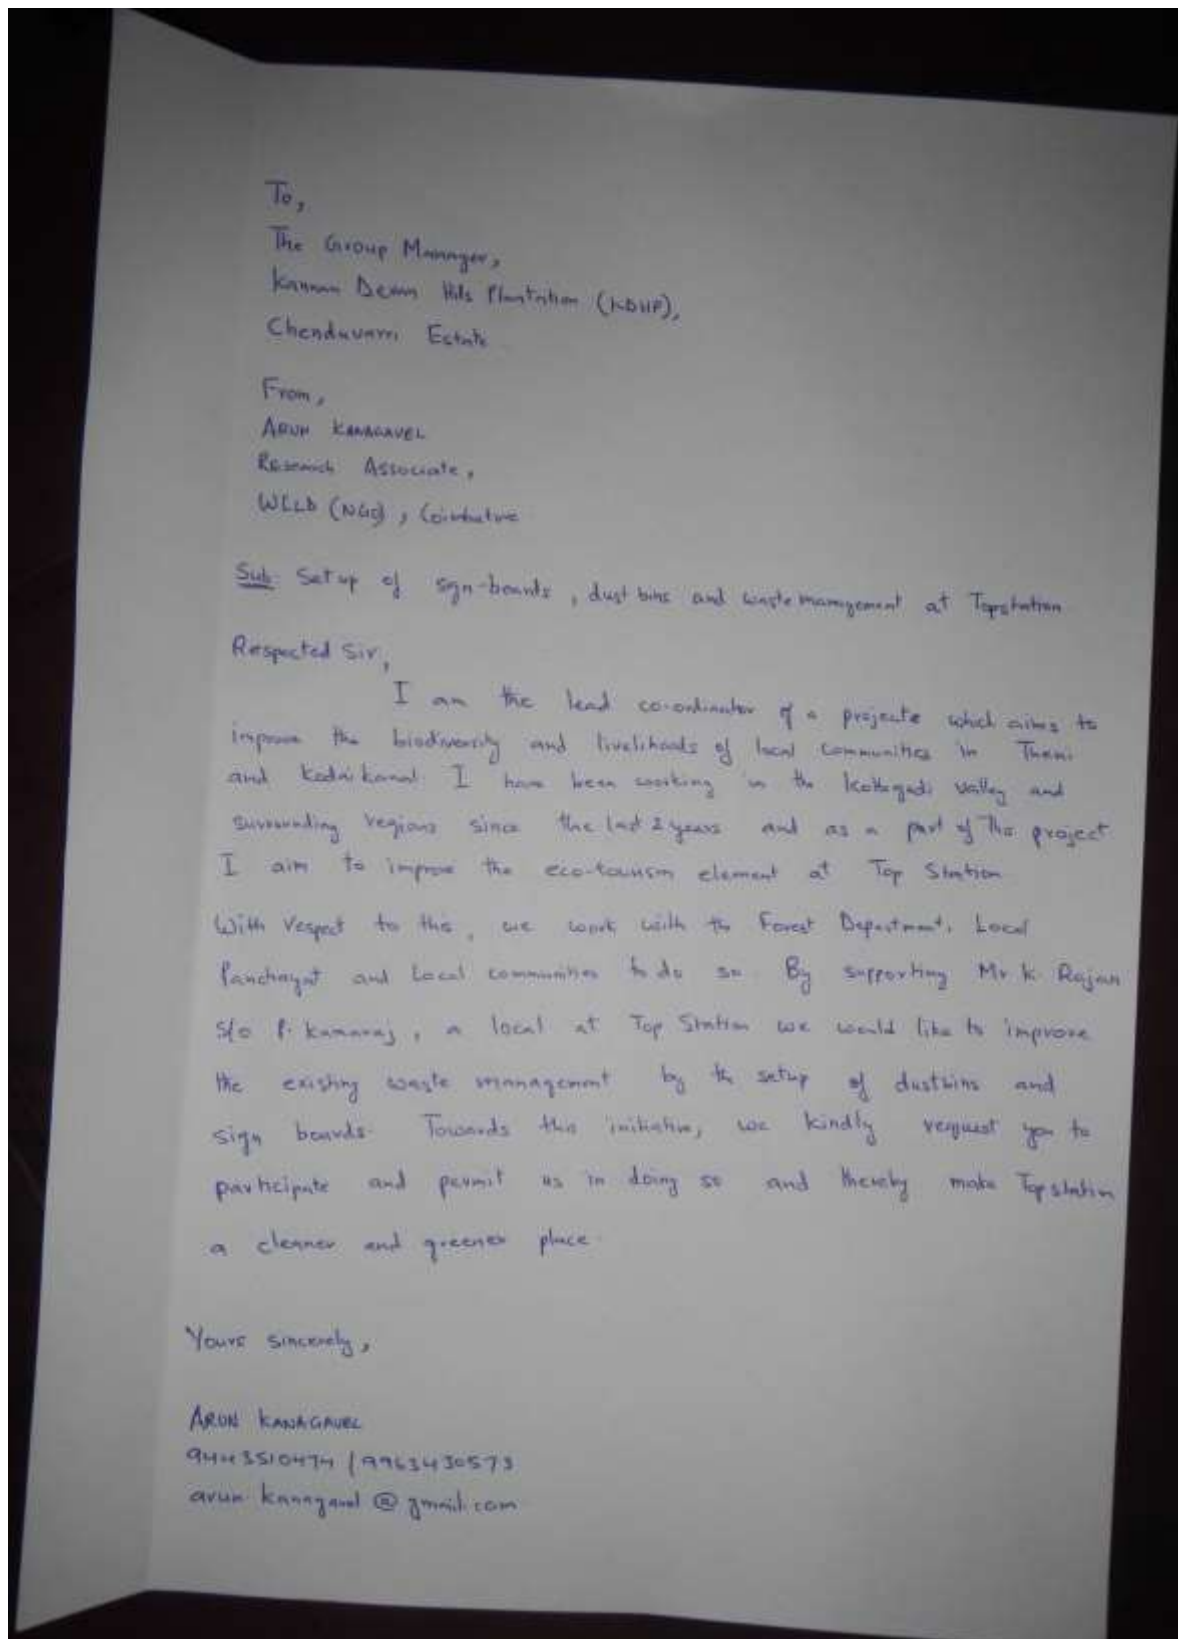 To,
The Group Manager,
Kannan Devan Hills Plantation (KDHP),
Chenduvarrai Estate
From,
ARUN KANAGAVEL
Research Associate,
WCLD (NGO), Coimbatore
Sub: Setup of sign-boards, dust bins and waste management at Topstation
Respected Sir,
I am the lead co-ordinator of a projecte which aims to
improve the biodiversity and livelihoods of local communities in Theni
and Kodaikanal. I have been working in the Kottagudi valley and
surrounding regions since the last 2 years and as a part of the project.
I aim to improve the eco-tourism element at Top Station
With respect to this, we work with the Forest Department, Local
Panchayat and Local communities to do so. By supporting Mr K. Rajan
S/o P. Kamaraj, a local at Top Station we would like to improve
the existing waste management by the setup of dustbins and
sign boards. Towards this initiative, we kindly request you to
participate and permit us in doing so and thereby make Topstation
a cleaner and greener place.
Yours sincerely,
ARUN KANAGAVEL
9443510474 / 9963430573
arun.kanagavel@gmail.com